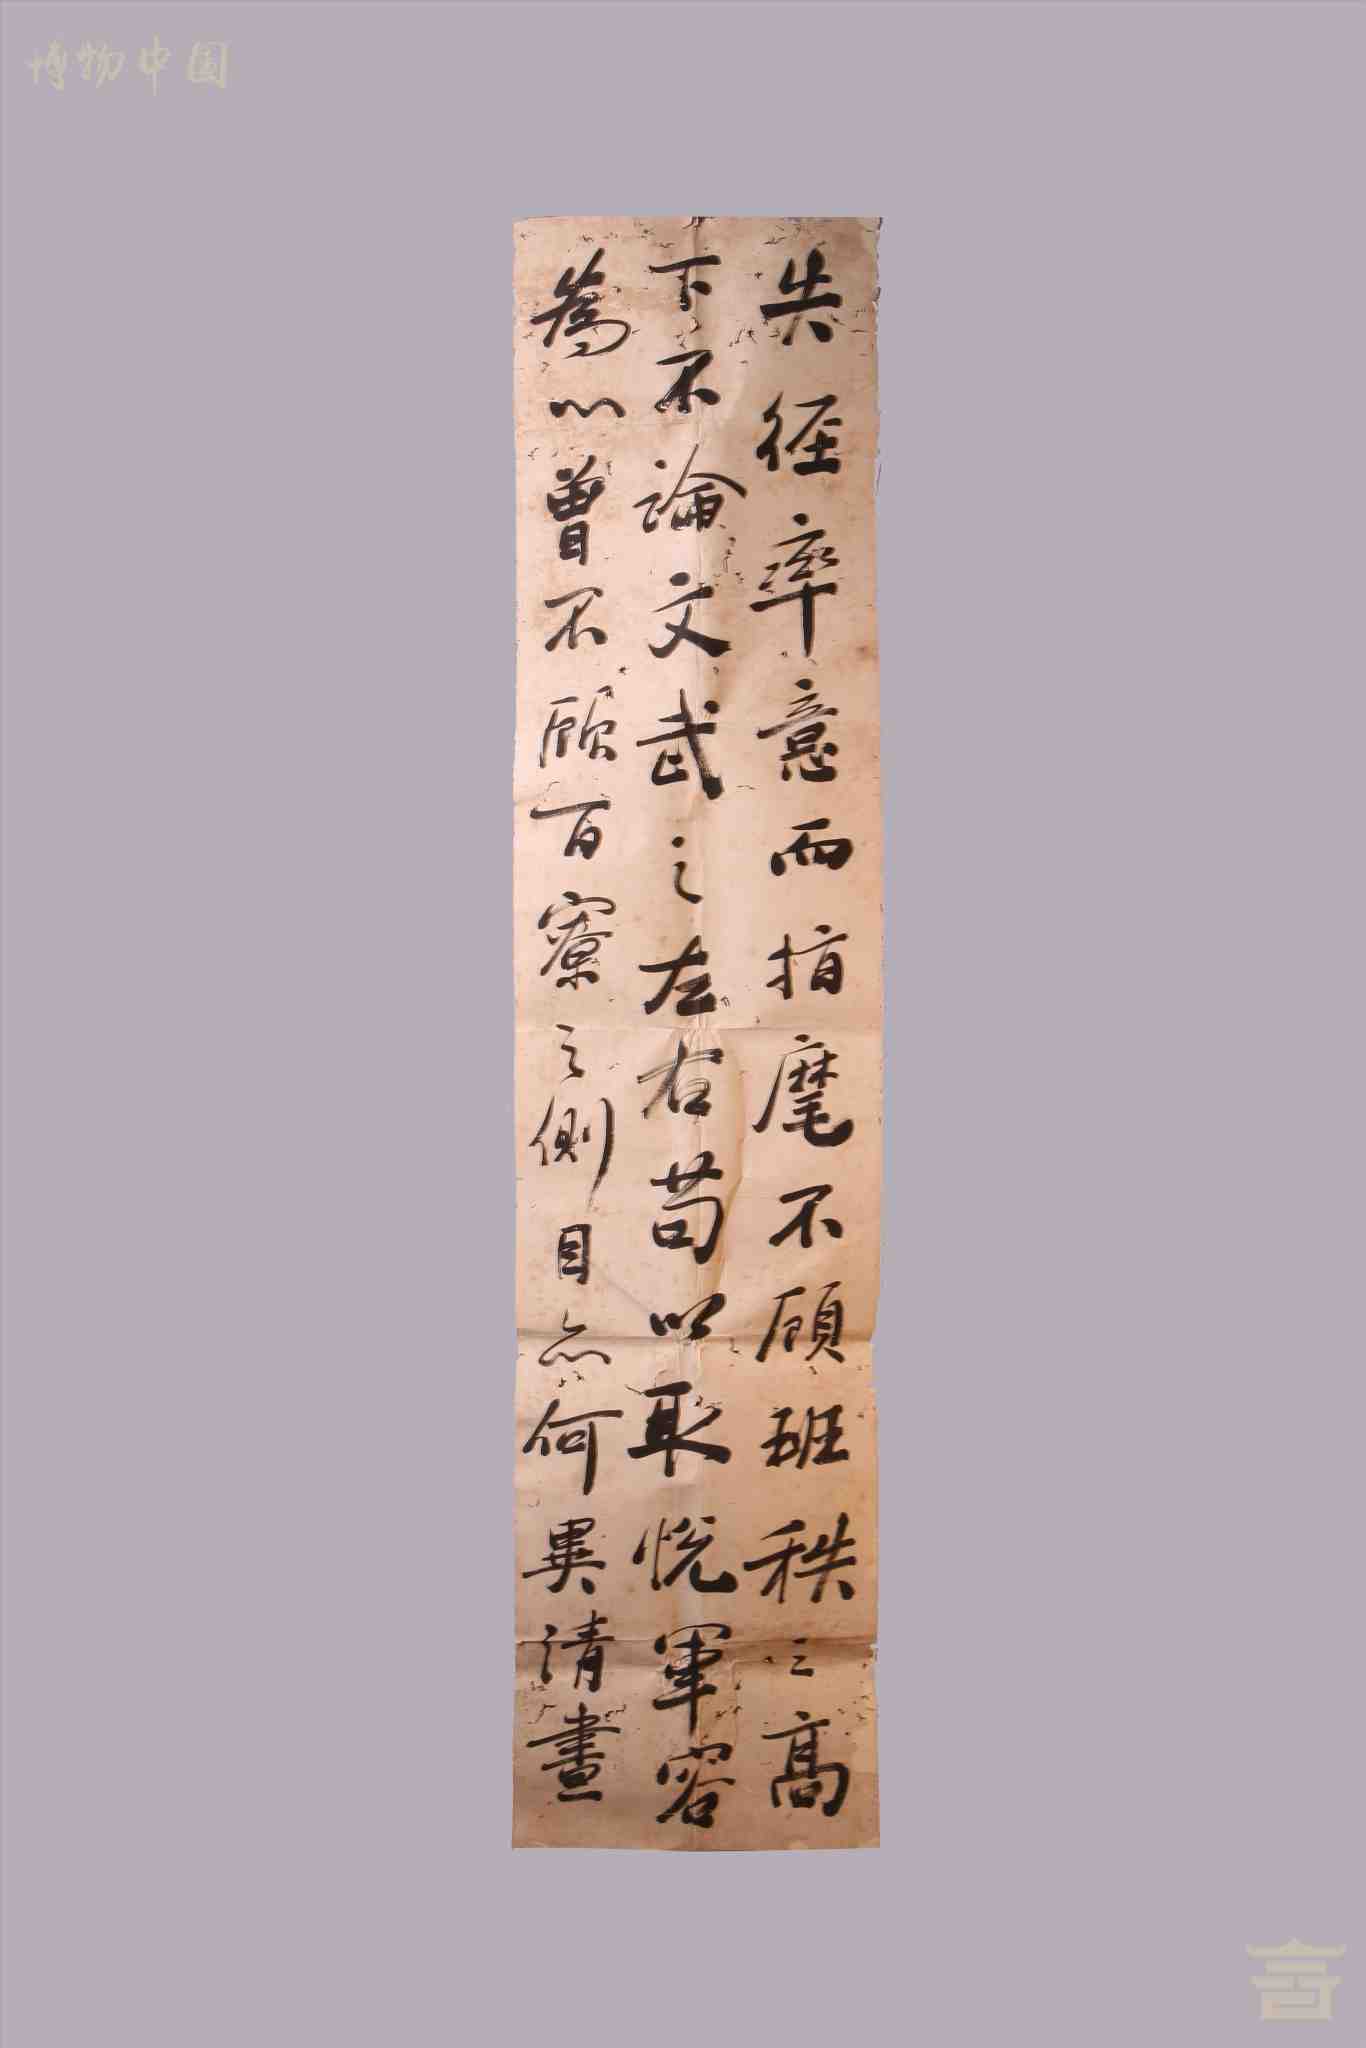 博物中国
失徑率意而指麾不顧班秩之高
下不論文武之左右苟以取悅軍容
為心曾不顧百寮之側目亦何異清晝